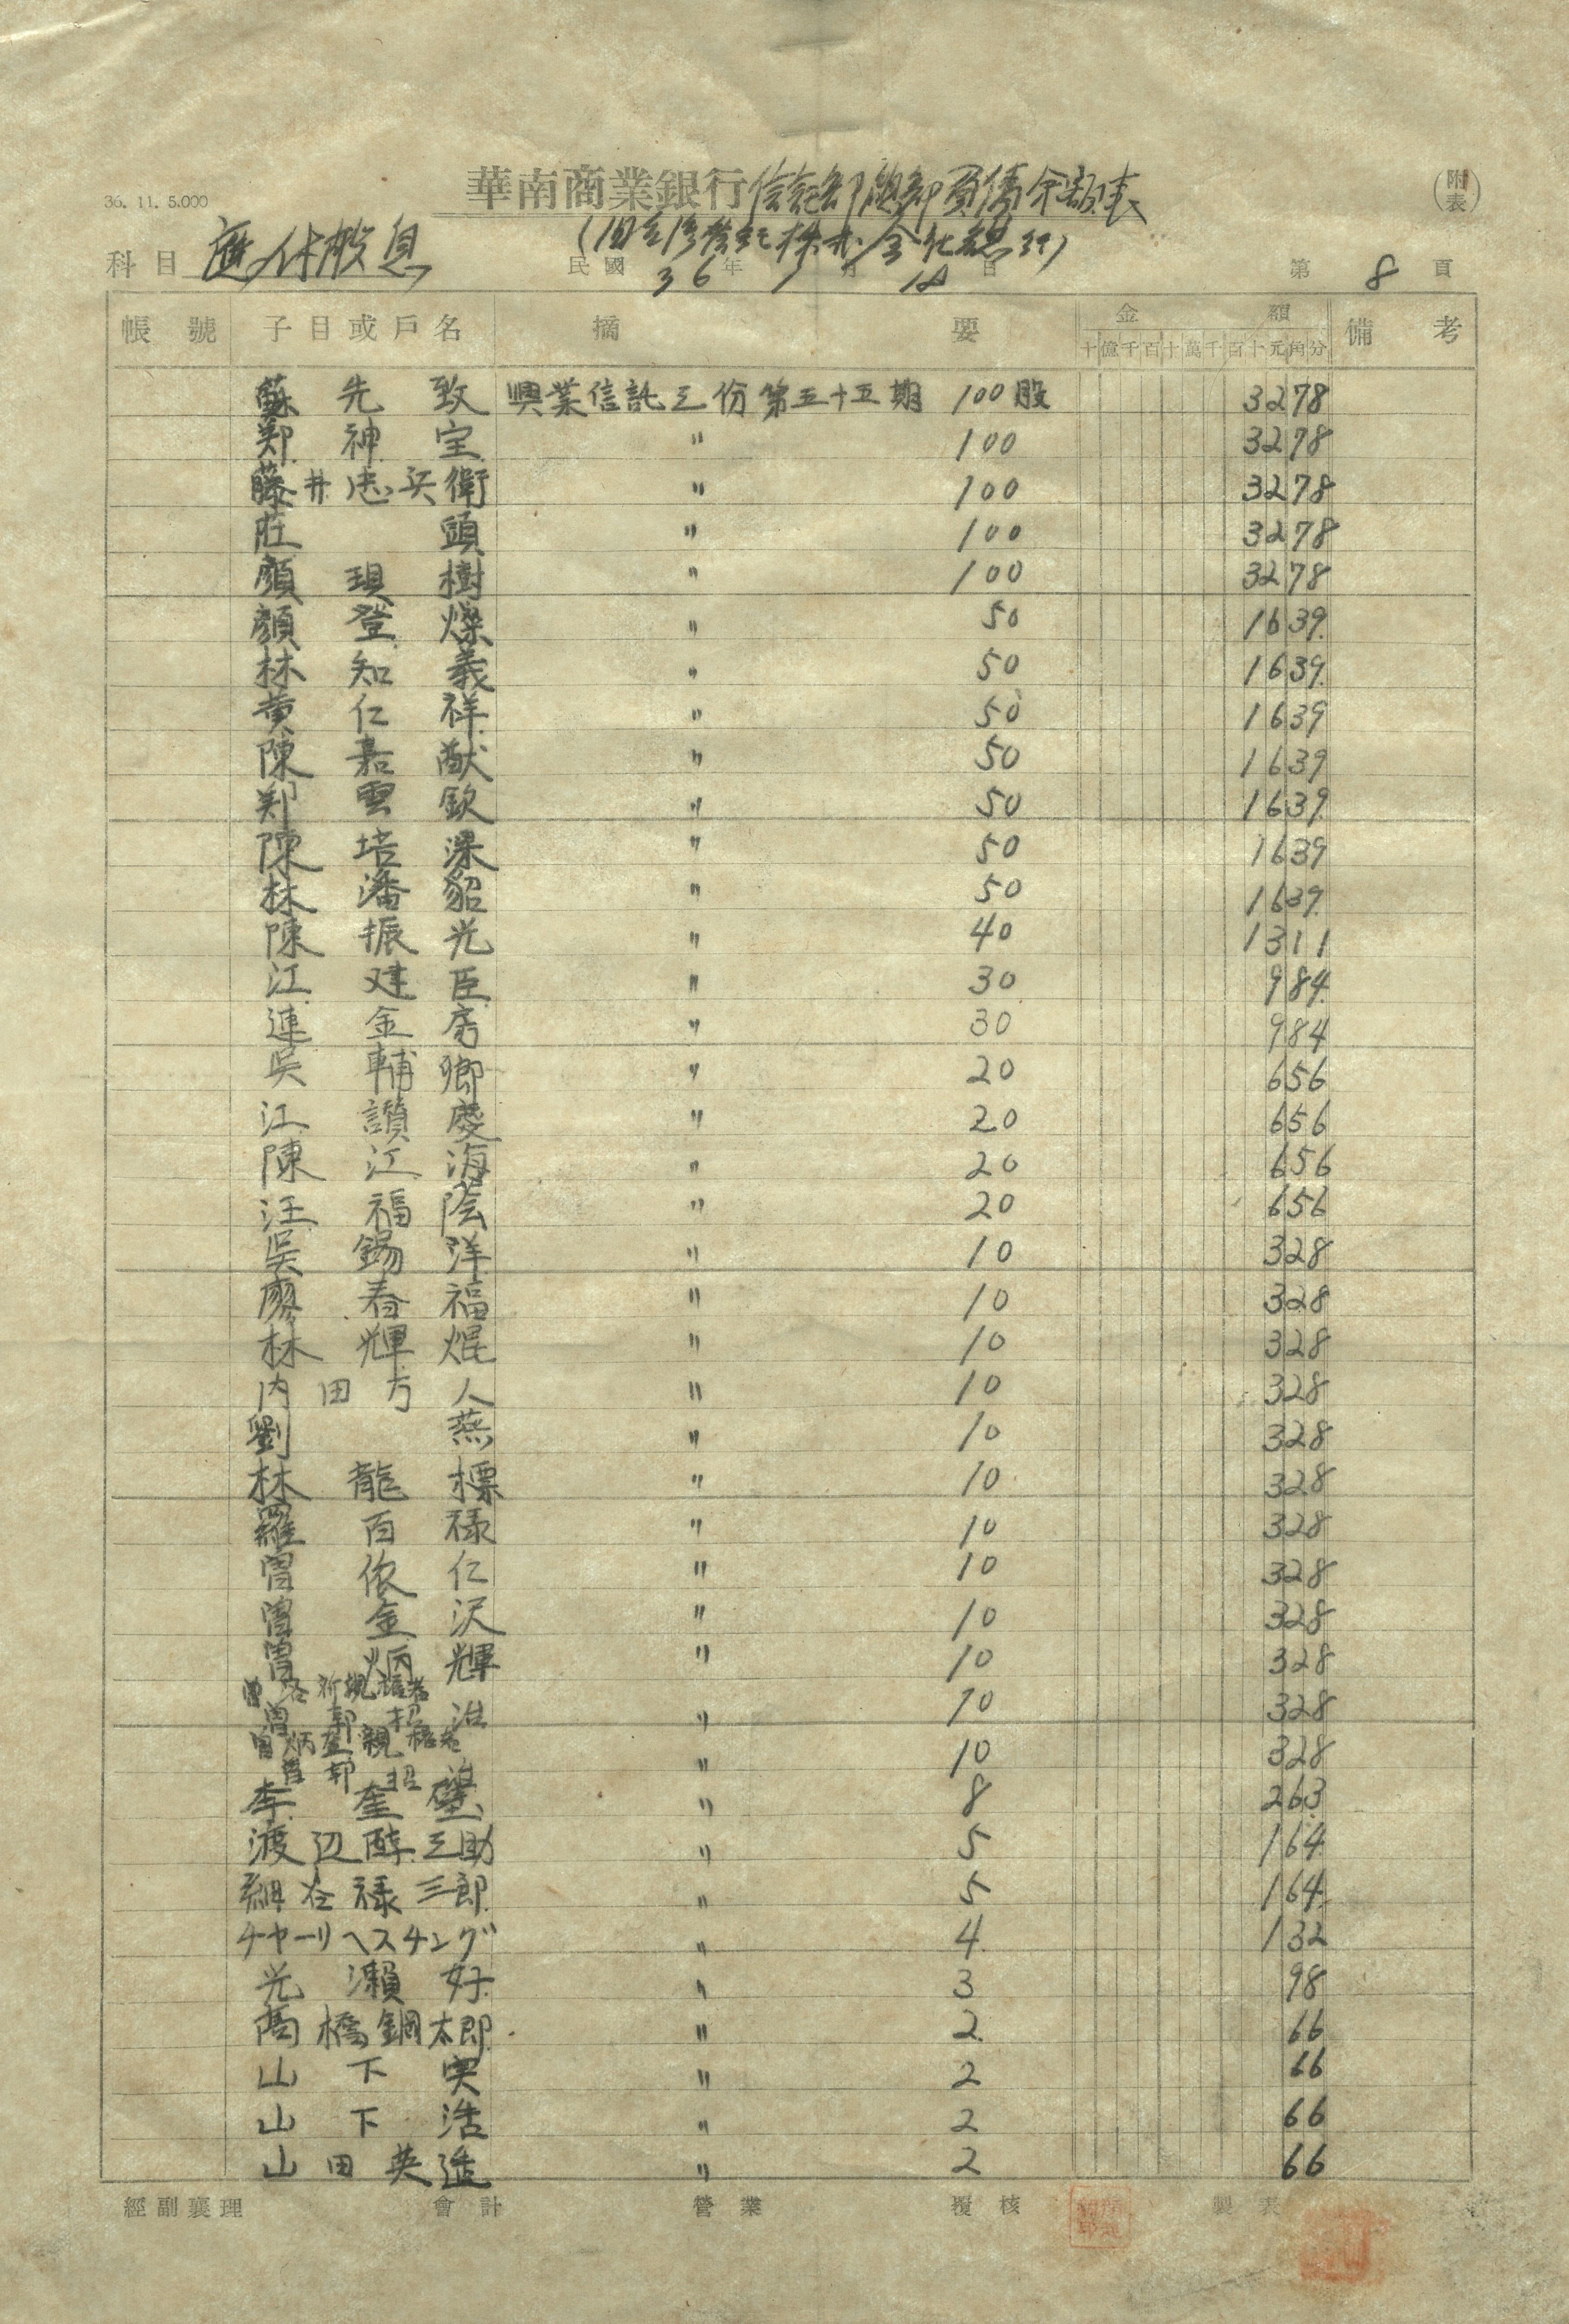 36. 11. 5.000
華南商業銀行信託部總部負債余額表
(附表)
科目 應付股息
民國36年 月 日
第 8 頁
帳號 子目或戶名 摘要 金額 備考
十億千百十萬千百十元角分
蘇先致 興業信託 份第五十五期 100股 3278
郑神宝 〃 100 3278
藤井忠兵衛 〃 100 3278
莊頭 〃 100 3278
顏現樹 〃 100 3278
顏登燦 〃 50 1639
林知義 〃 50 1639
黄仁祥 〃 50 1639
陳嘉猷 〃 50 1639
郑雲欽 〃 50 1639
陳培深 〃 50 1639
林潘貂 〃 50 1639
陳振光 〃 40 1311
江建臣 〃 30 984
連金房 〃 30 984
吳輔卿 〃 20 656
江讚慶 〃 20 656
陳江海 〃 20 656
汪福蔭 〃 20 656
吳錫洋 〃 10 328
廖春福 〃 10 328
林輝焜 〃 10 328
内田方人 〃 10 328
劉燕 〃 10 328
林龍標 〃 10 328
羅百禄 〃 10 328
曾依仁 〃 10 328
曾金沢 〃 10 328
曾炳輝 〃 10 328
〃 10 328
〃 10 328
李奎璧 〃 8 263
渡辺醇三助 〃 5 164
網谷禄三郎 〃 5 164
チャーリヘスチング 〃 4 132
光瀬好 〃 3 98
髙橋鋼太郎 〃 2 66
山下実 〃 2 66
山下浩 〃 2 66
山田英造 〃 2 66
經副襄理 會計 營業 覆核 製表